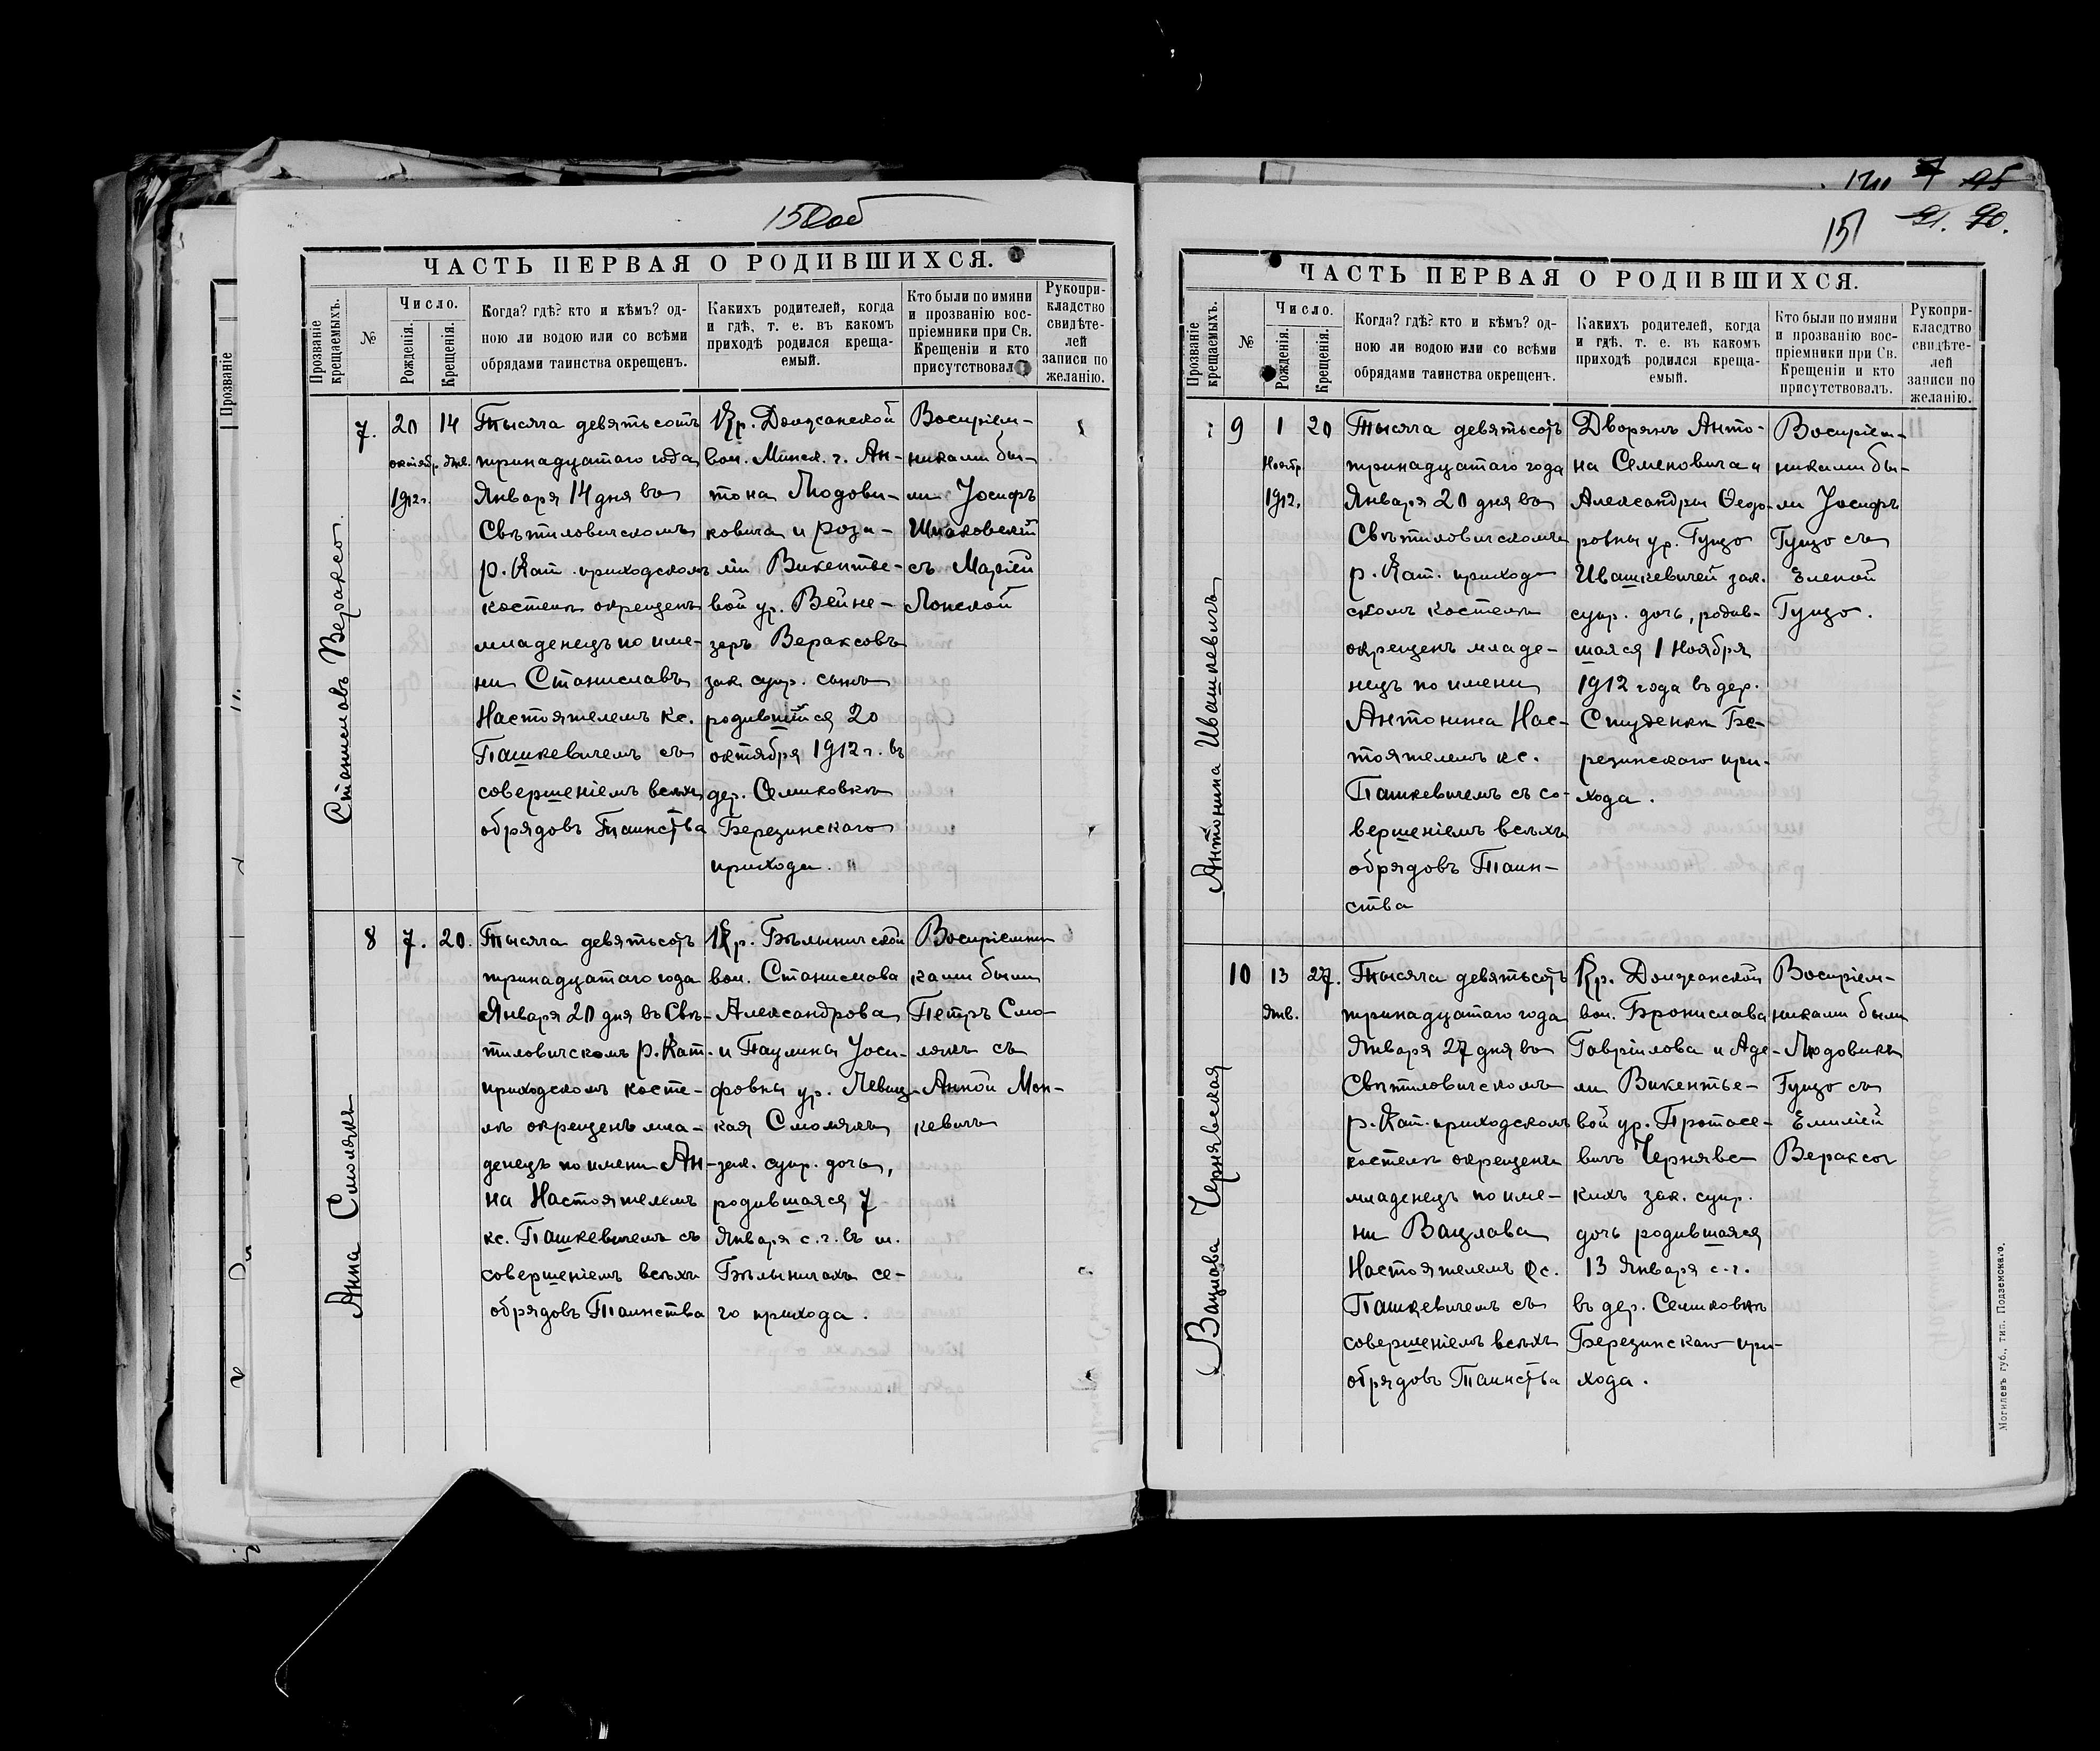 150об
ЧАСТЬ ПЕРВАЯ О РОДИВШИХСЯ.
Прозваніе крещаемыхъ.
№
Число.
Рожденія.
Крещенія.
Когда? гдѣ? кто и кѣмъ? од-
ною ли водою или со всѣми
обрядами таинства окрещенъ.
Каихъ родителей, когда
и гдѣ, т. е. въ какомъ
приходѣ родился креща-
емый.
Кто были по имяни
и прозванію вос-
пріемники при Св.
Крещеніи и кто
присутствовал
Рукопри-
кладство
свидѣте-
лей
записи по
желанію.
Станиславъ Вераксо.
7.
20
октябр.
1912г.
14
Янв.
Тысяча девятьсотъ
тринадцатаго года
Января 14 дня въ
Свѣтиловичскомъ
р. Кат. приходскомъ
костелѣ окрещенъ
младенецъ по име-
ни Станиславъ
Настоятелемъ кс.
Пашкевичемъ съ
совершеніемъ всѣхъ
обрядовъ Таинства
Кр. Должанской
вол. Минск. г. Ан-
тона Людови-
ковича и Роза-
ліи Викентье-
вой ур. Вейне-
зеръ Вераксовъ
зак. супр. сынъ
родившійся 20
октября 1912 г. въ
дер. Селиковкѣ
Березинскаго
прихода.
Воспріем-
никами бы-
ли Іосифъ
Шпаковскій
съ Маріей
Лонской
Анна Смолякъ
8
7.
20.
Тысяча девятьсотъ
тринадцатаго года
Января 20 дня въ Свѣ-
тиловичскомъ р. Кат.
приходскомъ косте-
лѣ окрещенъ мла-
денецъ по имени Ан-
на Настоятелемъ
кс. Пашкевичемъ съ
совершеніемъ всѣхъ
обрядовъ Таинства
Кр. Бѣлыничской
вол. Станислава
Александрова
и Паулины Іоси-
фовны ур. Левиц-
кая Смолякъ
зак. супр. дочь,
родившаяся 7
Января с. г. въ м.
Бѣлыничахъ се-
го прихода.
Воспріемни
ками были
Петръ Смо-
лякъ съ
Анной Мон-
кевичъ
151
91. 90.
ЧАСТЬ ПЕРВАЯ О РОДИВШИХСЯ.
Прозваніе крещаемыхъ.
№
Число.
Рожденія.
Крещенія.
Когда? гдѣ? кто и кѣмъ? од-
ною ли водою или со всѣми
обрядами таинства окрещенъ.
Какихъ родителей, когда
и гдѣ, т. е. въ какомъ
приходѣ родился креща-
емый.
Кто были по имяни
и прозванію вос-
пріемники при Св.
Крещеніи и кто
присутствовалъ.
Рукопри-
кластво
свидѣте-
лей
записи по
желанію.
Антонина Ивашкевичъ
9
1
Ноябр.
1912.
20
Тысяча девятьсотъ
тринадцатаго года
Января 20 дня въ
Свѣтиловичскомъ
р. Кат. приход-
скомъ костелѣ
окрещенъ младе-
нецъ по имени
Антонина Нас-
тоятелемъ кс.
Пашкевичемъ съ со-
вершеніемъ всѣхъ
обрядовъ Таин-
ства
Дворянъ Анто-
на Семеновича и
Александры Ѳеодо-
ровны ур. Гуцзо
Ивашкевичей зак.
супр. дочь, родив-
шаяся 1 Ноября
1912 года въ дер.
Студенки Бе-
резинскаго при-
хода.
Воспріем-
никами бы-
ли Іосифъ
Гуцзо съ
Еленой
Гуцзо.
Вацлава Чернявская
10
13
Янв.
27.
Тысяча девятьсотъ
тринадцатаго года
Января 27 дня въ
Свѣтиловичскомъ
р. Кат. приходскомъ
костелѣ окрещенъ
младенецъ по име-
ни Вацлава
Настоятелемъ кс.
Пашкевичемъ съ
совершеніемъ всѣхъ
обрядовъ Таинства
Кр. Должанской
вол. Бронислава
Гавріилова и Аде-
ли Викентье-
вой ур. Протасе-
вичъ Чернявс-
кихъ зак. супр.
дочь родившаяся
13 Января с. г.
въ дер. Селиковкѣ
Березинскаго при-
хода.
Воспріем-
никами были
Людовикъ
Гуцзо съ
Емиліей
Вераксо
Могилевъ губ., тип. Подземскаго.